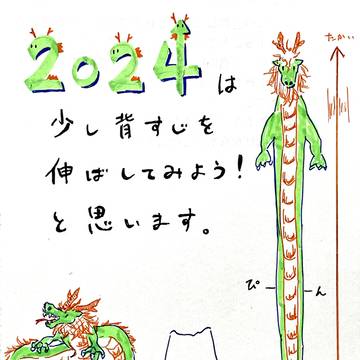 2024は
少し背すじを
伸ばしてみよう!
と思います。
たかい
ぴーーん